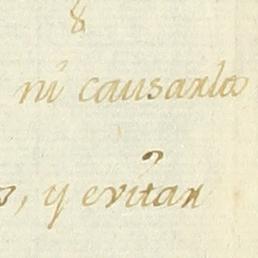 8
ni causarlo
, y evitan